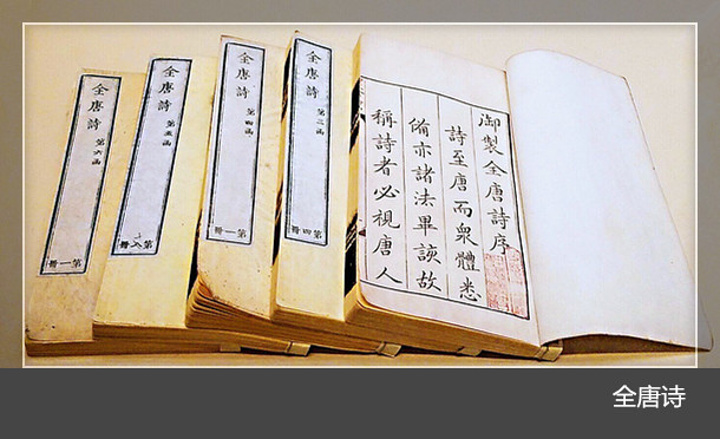 御製全唐詩序
詩至唐而衆體悉
俻亦諸法畢該故
稱詩者必視唐人
全唐詩 第二函
第四冊
全唐詩 第四函
第一冊
全唐詩 第五函
第八冊
全唐詩 第六函
第一冊
全唐诗